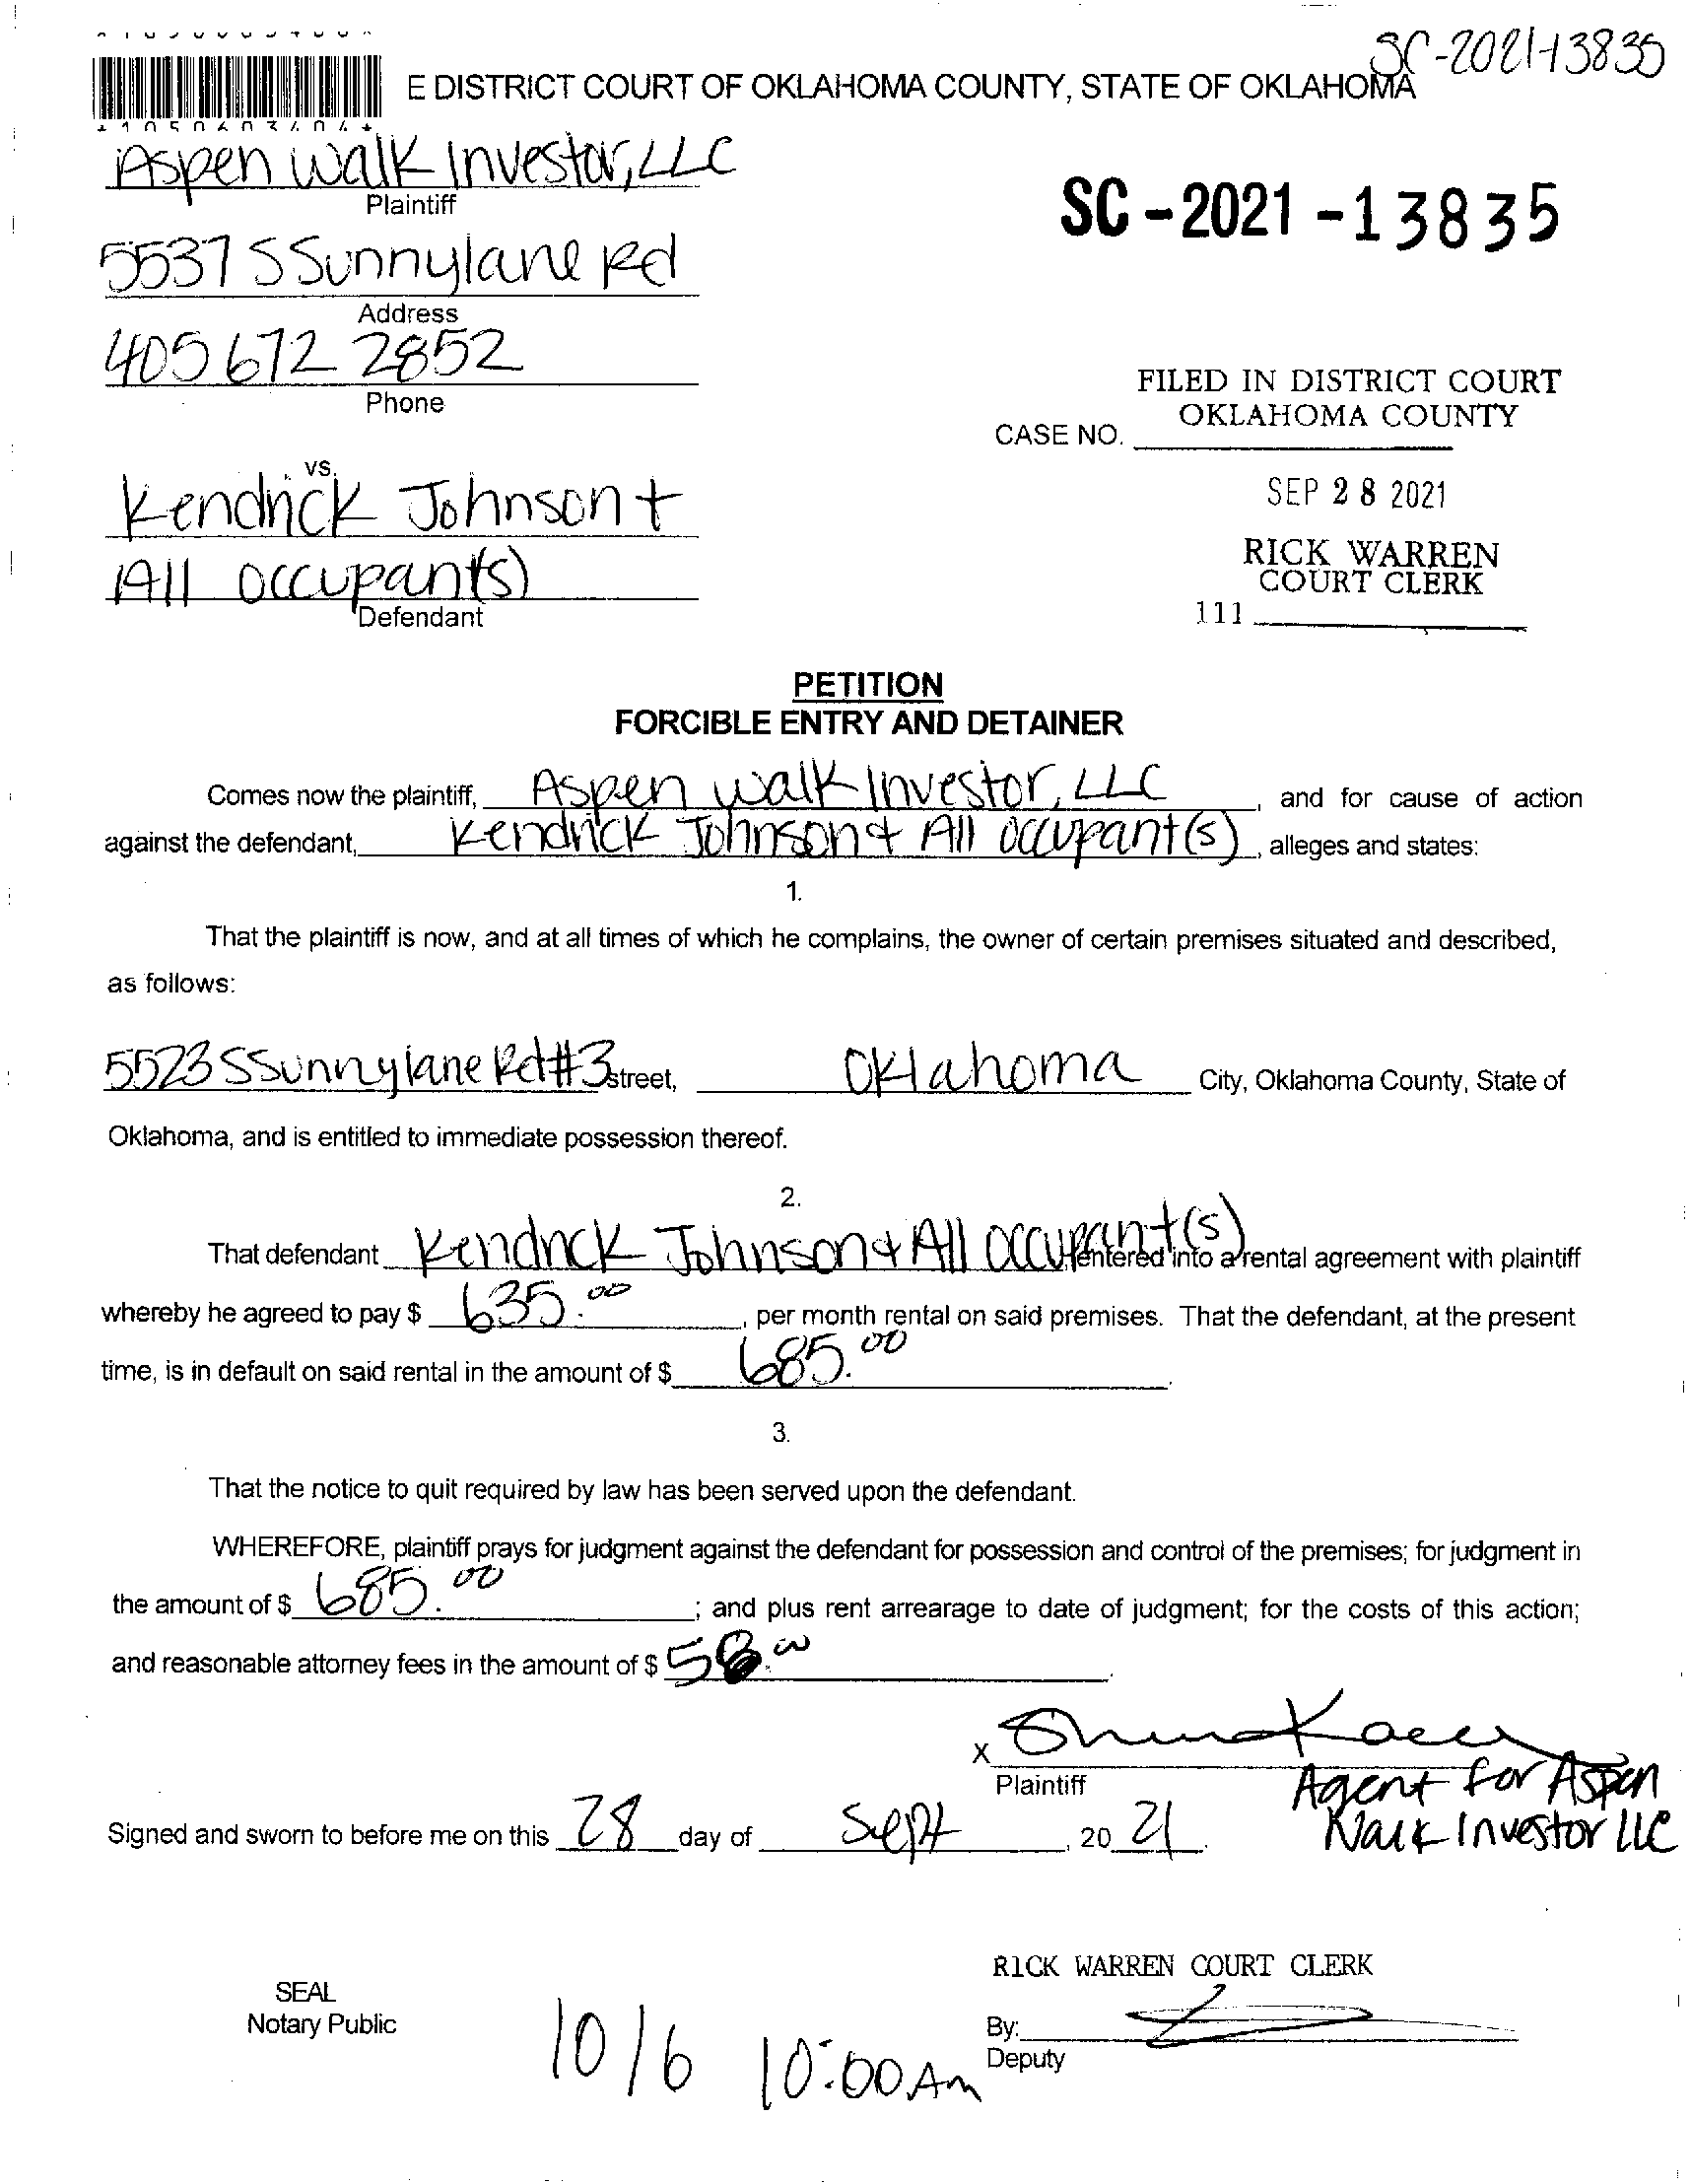 SC-2021-13835
E DISTRICT COURT OF OKLAHOMA COUNTY, STATE OF OKLAHOMA
Aspen Walk Investor, LLC
Plaintiff
SC-2021-13835
5537 S Sunnylane Rd
Address
405 672 2852
Phone
FILED IN DISTRICT COURT
OKLAHOMA COUNTY
CASE NO.
vs.
SEP 28 2021
Kendrick Johnson +
RICK WARREN
COURT CLERK
All occupant(s)
Defendant
111
PETITION
FORCIBLE ENTRY AND DETAINER
Comes now the plaintiff, Aspen Walk Investor, LLC, and for cause of action
against the defendant, Kendrick Johnson & All occupant(s), alleges and states:
1.
That the plaintiff is now, and at all times of which he complains, the owner of certain premises situated and described,
as follows:
5523 S Sunnylane Rd #3 street, Oklahoma City, Oklahoma County, State of
Oklahoma, and is entitled to immediate possession thereof.
2.
That defendant Kendrick Johnson & All occupant(s), entered into a rental agreement with plaintiff
whereby he agreed to pay $ 635.00, per month rental on said premises. That the defendant, at the present
time, is in default on said rental in the amount of $ 685.00.
3.
That the notice to quit required by law has been served upon the defendant.
WHEREFORE, plaintiff prays for judgment against the defendant for possession and control of the premises; for judgment in
the amount of $ 685.00; and plus rent arrearage to date of judgment; for the costs of this action;
and reasonable attorney fees in the amount of $ 58.00.
X
Plaintiff
Agent for Aspen
Walk Investor LLC
Signed and sworn to before me on this 28 day of Sept, 20 21.
RICK WARREN COURT CLERK
SEAL
Notary Public
10/6 10:00 Am
By:
Deputy